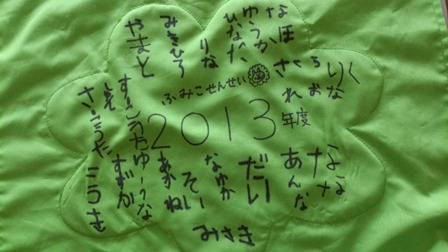 なほ
ゆうか
ひなた
りな
みきひろ
やまと
さくら
りく
りおな
れお
ふみこせんせい
2013年度
なな
あんな
だい
なゆか
せい
あかね
みさき
ゆうな
すずか
そうた
こうき